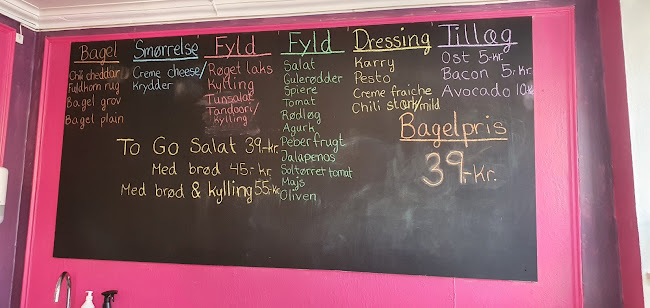 Bagel
Chili cheddar
Fuldkorn rug
Bagel grov
Bagel plain
Smørrelse
Creme cheese/
Krydder
Fyld
Røget laks
Kylling
Tunsalat
Tandoori/
Kylling
Fyld
Salat
Gulerødder
Spiere
Tomat
Rødløg
Agurk
Peberfrugt
Jalapenos
Soltørret tomat
Majs
Oliven
Dressing
Karry
Pesto
Creme fraiche
Chili stærk/mild
Tillæg
Ost 5-kr.
Bacon 5-kr.
Avocado 10-kr.
Bagelpris
39,-kr.
To Go Salat 39,-kr.
Med brød 45,-kr.
Med brød & kylling 55,-kr.